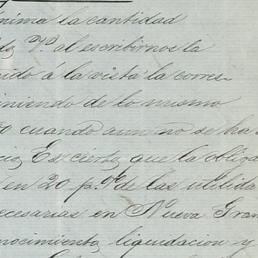 nima la cantidad
al escribirnos la
nido á la vista la corres-
niendo de lo mismo
o cuando aun no se ha
Es cierto que la obliga
en 20 p.% de las utilida
ecesarias en Nueva Gran
nocimiento, liquidacion y